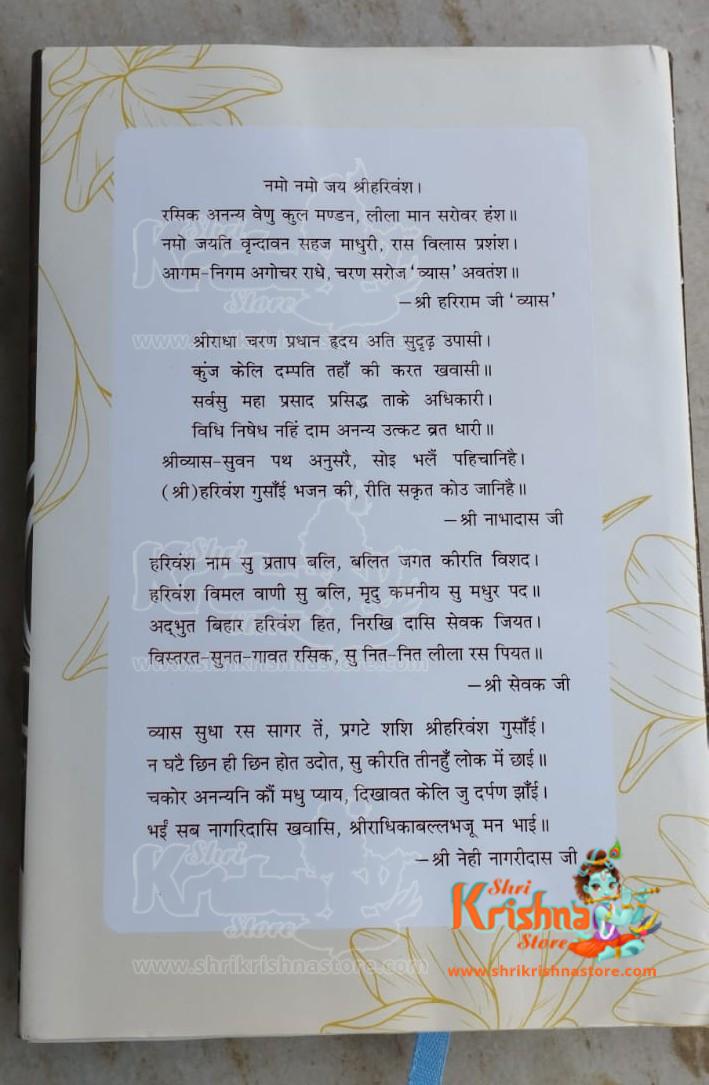 नमो नमो जय श्रीहरिवंश।
रसिक अनन्य वेणु कुल मण्डन, लीला मान सरोवर हंश॥
नमो जयति वृन्दावन सहज माधुरी, रास विलास प्रशंश।
आगम-निगम अगोचर राधे, चरण सरोज ‘व्यास’ अवतंश॥
–श्री हरिराम जी ‘व्यास’
श्रीराधा चरण प्रधान हृदय अति सुदृढ़ उपासी।
कुंज केलि दम्पति तहाँ की करत खवासी॥
सर्वसु महा प्रसाद प्रसिद्ध ताके अधिकारी।
विधि निषेध नहिं दाम अनन्य उत्कट व्रत धारी॥
श्रीव्यास-सुवन पथ अनुसरै, सोइ भलैं पहिचानिहै।
(श्री)हरिवंश गुसाँई भजन की, रीति सकृत कोउ जानिहै॥
–श्री नाभादास जी
हरिवंश नाम सु प्रताप बलि, बलित जगत कीरति विशद।
हरिवंश विमल वाणी सु बलि, मृदु कमनीय सु मधुर पद॥
अद्‌भुत बिहार हरिवंश हित, निरखि दासि सेवक जियत।
विस्तरत-सुनत-गावत रसिक, सु नित-नित लीला रस पियत॥
–श्री सेवक जी
व्यास सुधा रस सागर तें, प्रगटे शशि श्रीहरिवंश गुसाँई।
न घटै छिन ही छिन होत उदोत, सु कीरति तीनहुँ लोक में छाई॥
चकोर अनन्यनि कौं मधु प्याय, दिखावत केलि जु दर्पण झाँई।
भईं सब नागरिदासि खवासि, श्रीराधिकाबल्लभजू मन भाई॥
–श्री नेही नागरीदास जी
Shri
Krishna
Store
www.shrikrishnastore.com
Shri
Store
www.shrikrishnastore.com
Shri
Store
www.shrikrishnastore.com
Shri
Store
www.shrikrishnastore.com